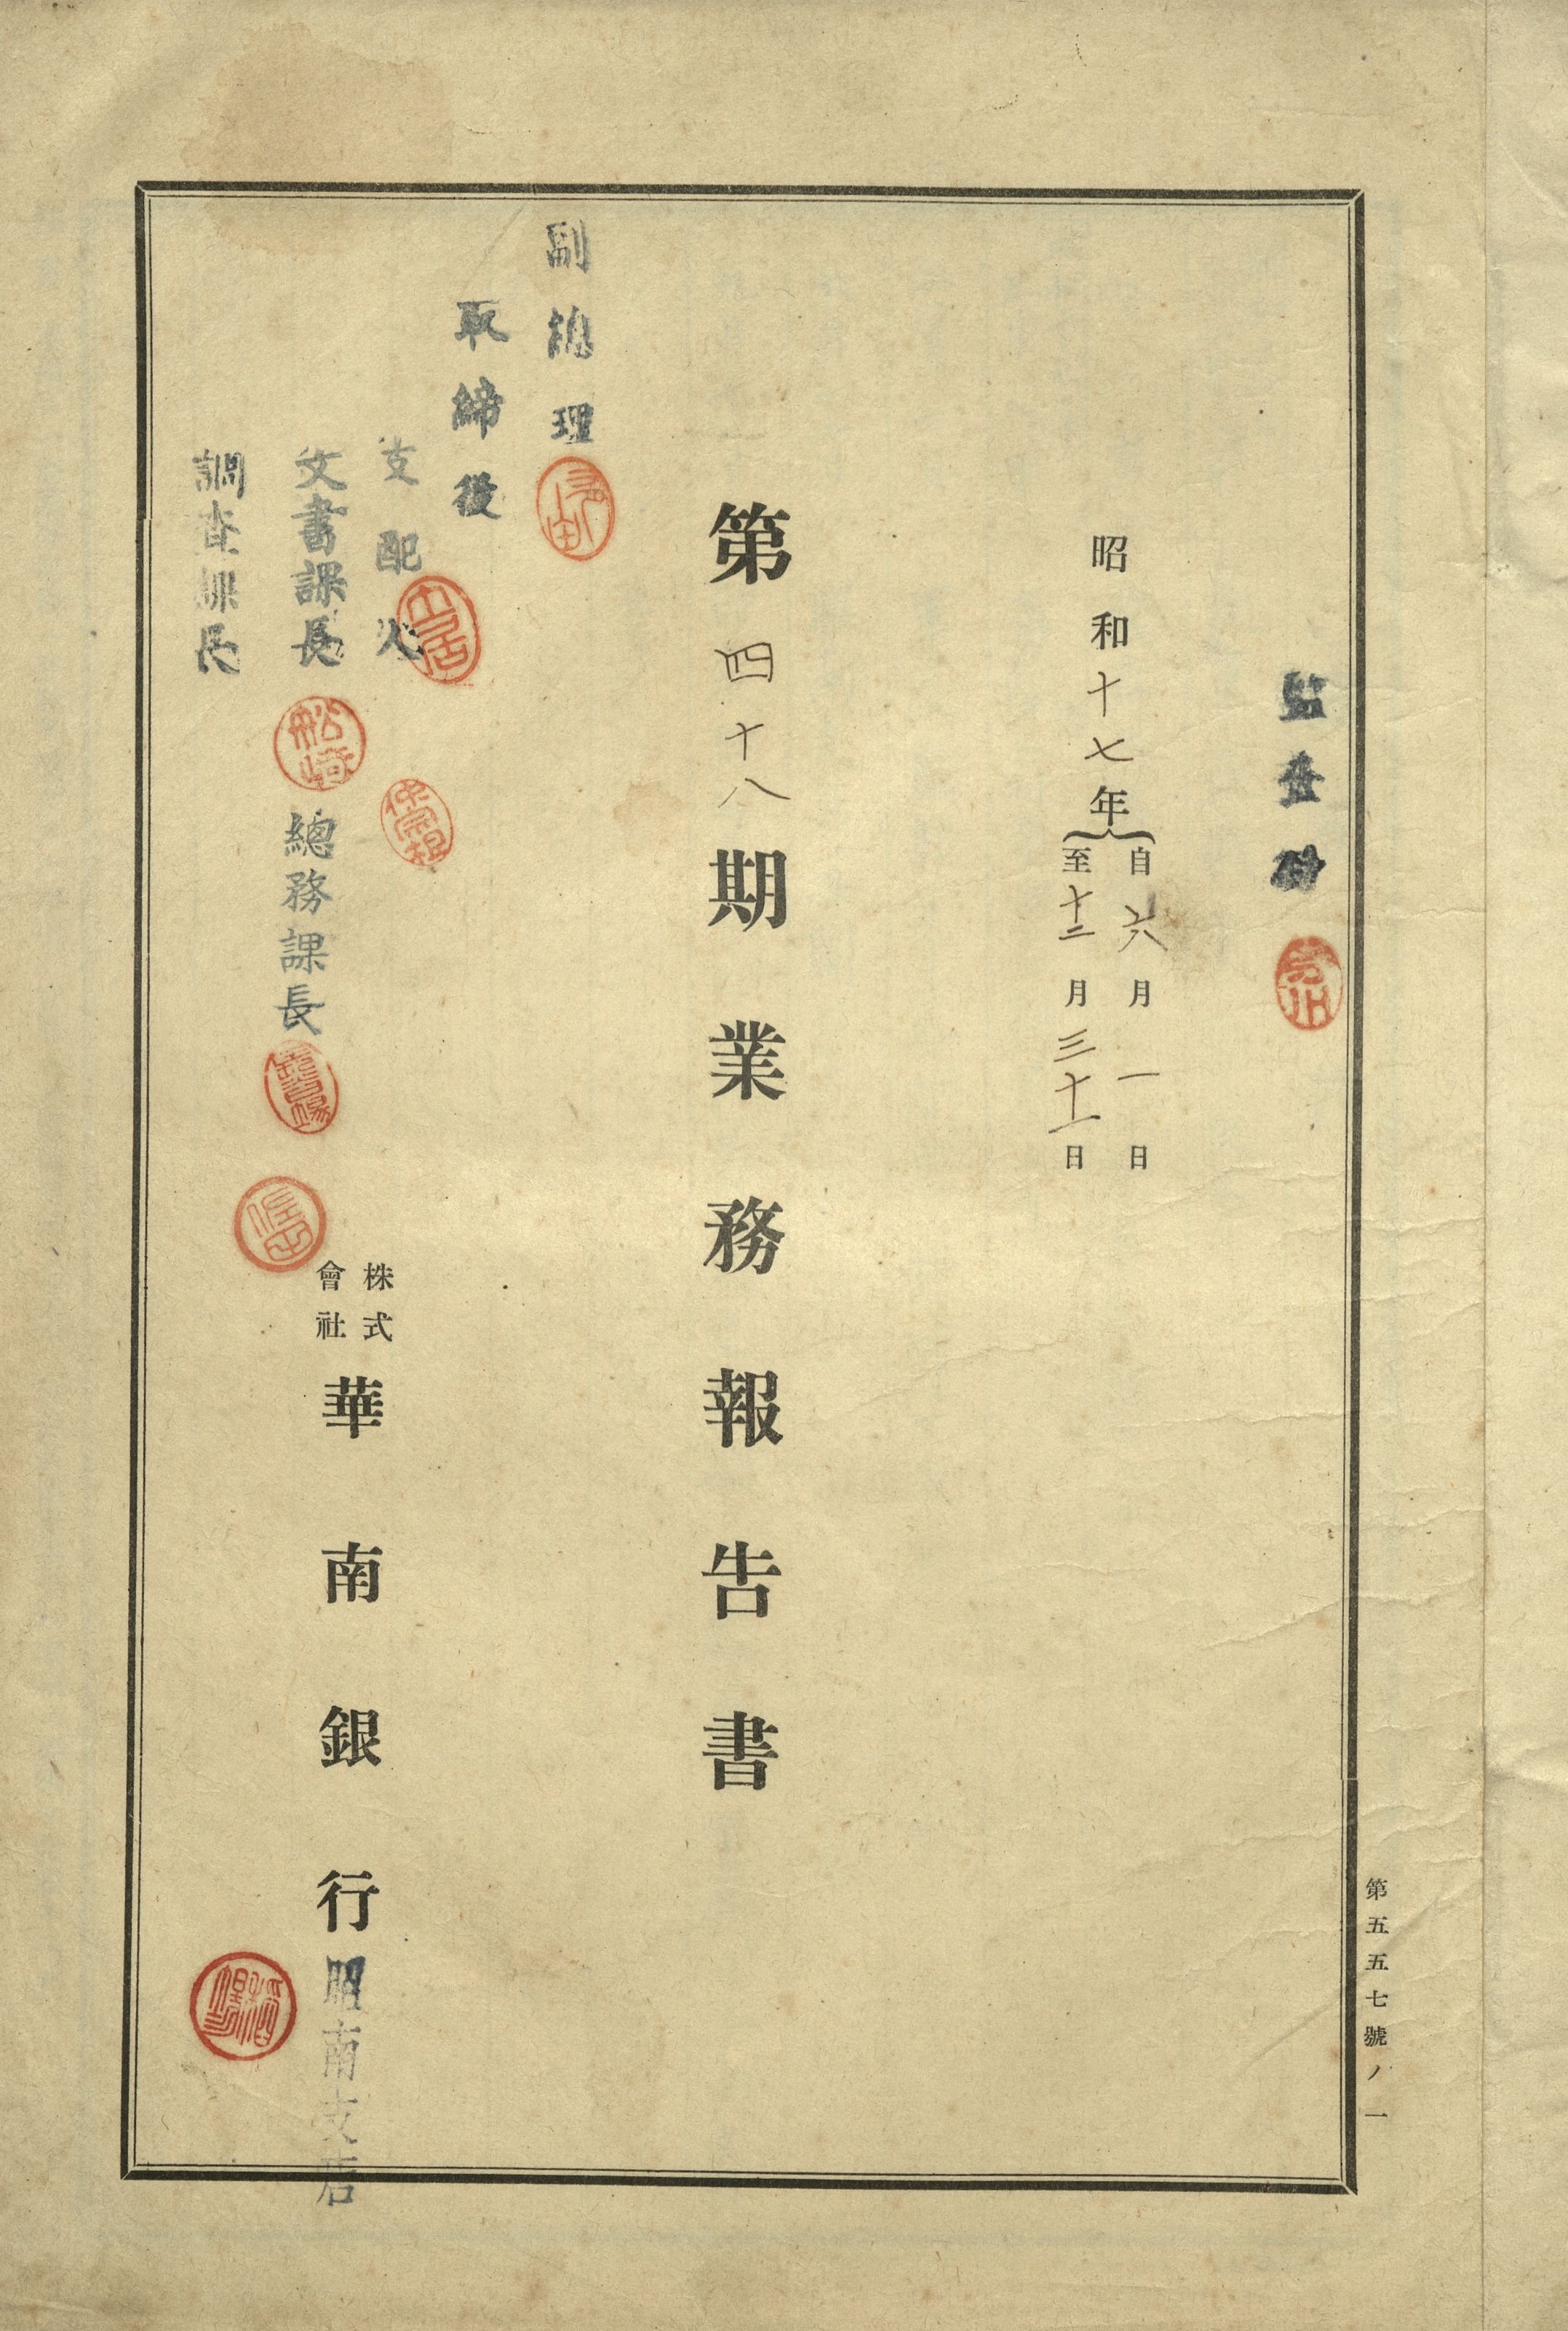 第五五七號ノ一
監査役
昭和十七年
自六月一日
至十二月三十一日
第四十八期業務報告書
副總理
取締役
支配人
文書課長
船崎
總務課長
調査課長
株式會社華南銀行昭南支店